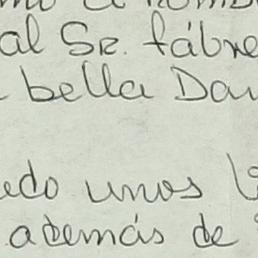 al Sr. fábre
bella Da
udo unos
además de